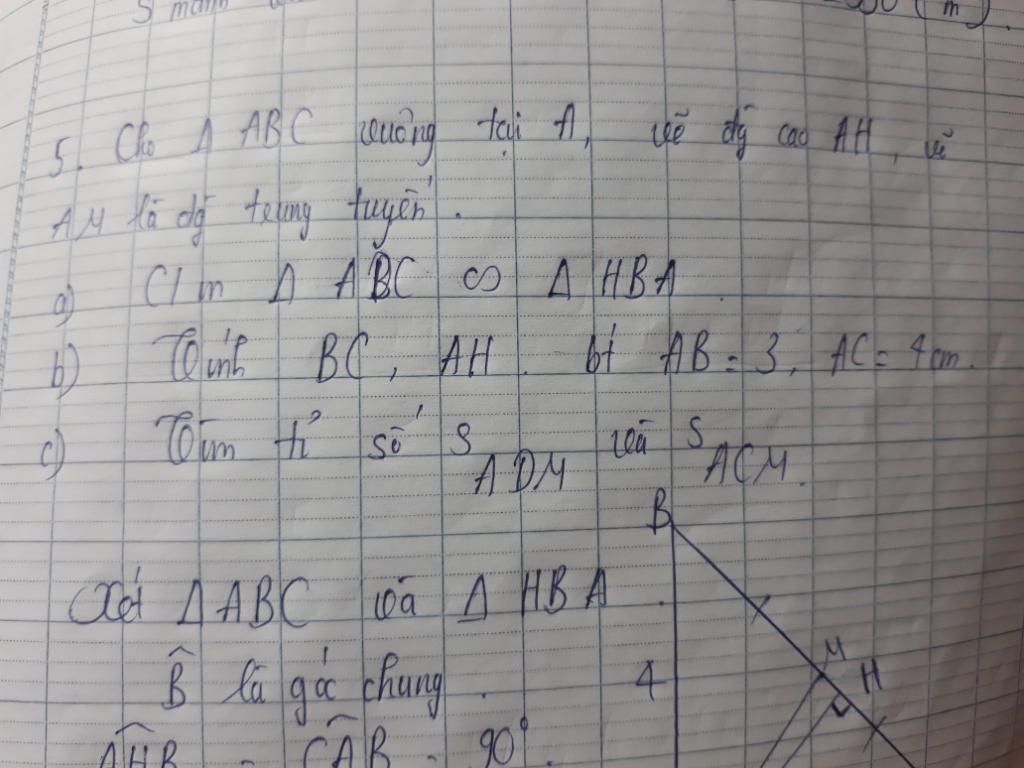 5. Cho Δ ABC vuông tại A, vẽ đg cao AH, vẽ
AM là đg trung tuyến.
a) C/m Δ ABC ∽ Δ HBA.
b) Tính BC, AH. bt AB = 3, AC = 4 cm.
c) Tìm tỉ số S ADM và S ACM.
B
Xét Δ ABC và Δ HBA.
M
B̂ là góc chung.
4
H
AHB = CAB = 90°.